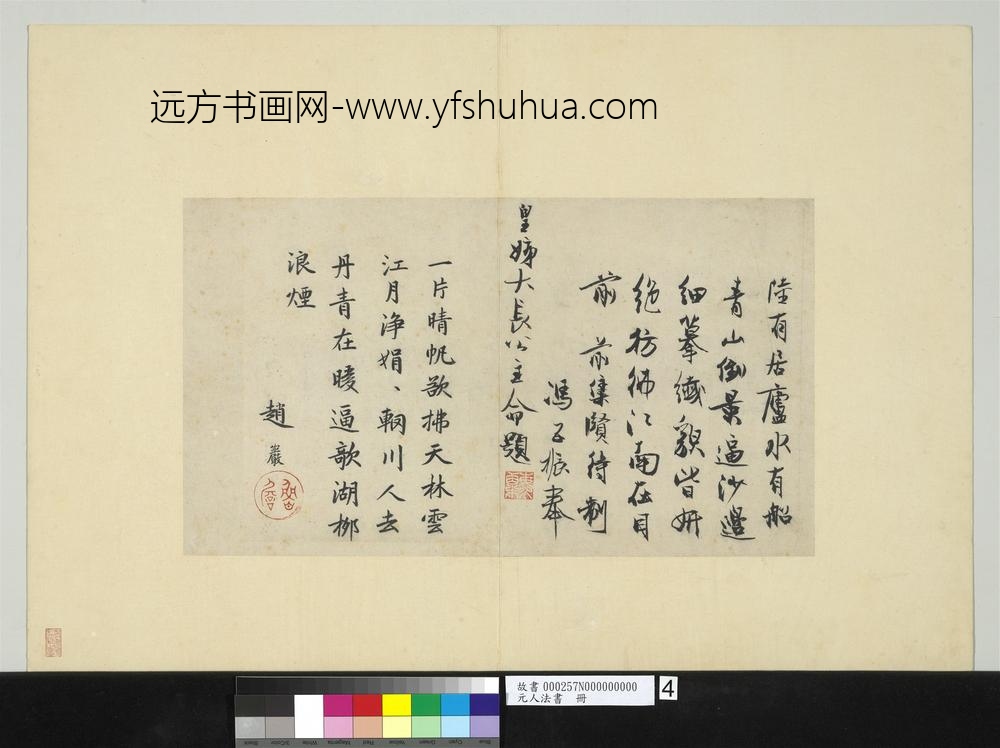 远方书画网-www.yfshuhua.com
陸有居廬水有船
青山倒景逼沙邊
細摹纖貌皆妍
絕彷彿江南在目
前 前集賢待制
馮子振奉
皇姊大長公主命題
一片晴帆欲拂天林雲
江月淨娟、輞川人去
丹青在暖逼歌湖柳
浪煙
趙巖
故書 000257N000000000
元人法書 冊
4
Black 3/Color White Magenta Red Yellow Green Cyan Blue